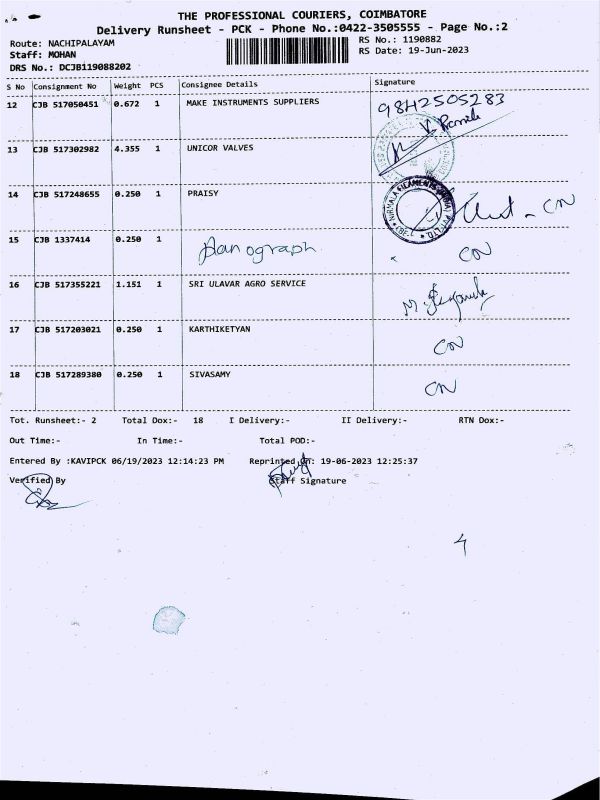 THE PROFESSIONAL COURIERS, COIMBATORE
Delivery Runsheet - PCK - Phone No.:0422-3505555 - Page No.:2
Route: NACHIPALAYAM RS No.: 1190882
Staff: MOHAN RS Date: 19-Jun-2023
DRS No.: DCJB119088202
S No Consignment No Weight PCS Consignee Details Signature
12 CJB 517050451 0.672 1 MAKE INSTRUMENTS SUPPLIERS 9842505283
13 CJB 517302982 4.355 1 UNICOR VALVES
14 CJB 517248655 0.250 1 PRAISY CN
NIRMALA FILAMENTS
15 CJB 1337414 0.250 1 CN
16 CJB 517355221 1.151 1 SRI ULAVAR AGRO SERVICE
17 CJB 517203021 0.250 1 KARTHIKETYAN CN
18 CJB 517289380 0.250 1 SIVASAMY CN
Tot. Runsheet:- 2 Total Dox:- 18 I Delivery:- II Delivery:- RTN Dox:-
Out Time:- In Time:- Total POD:-
Entered By :KAVIPCK 06/19/2023 12:14:23 PM Reprinted On: 19-06-2023 12:25:37
Verified By Staff Signature
4